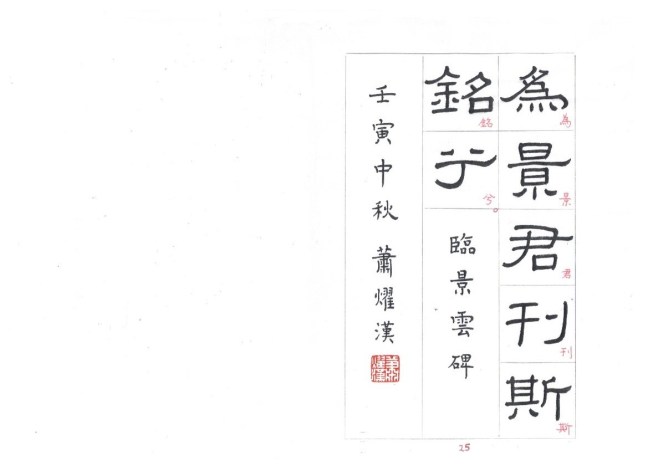 為景君刊斯
為景君刊斯
銘兮
銘兮。
臨景雲碑
壬寅中秋 蕭燿漢
25